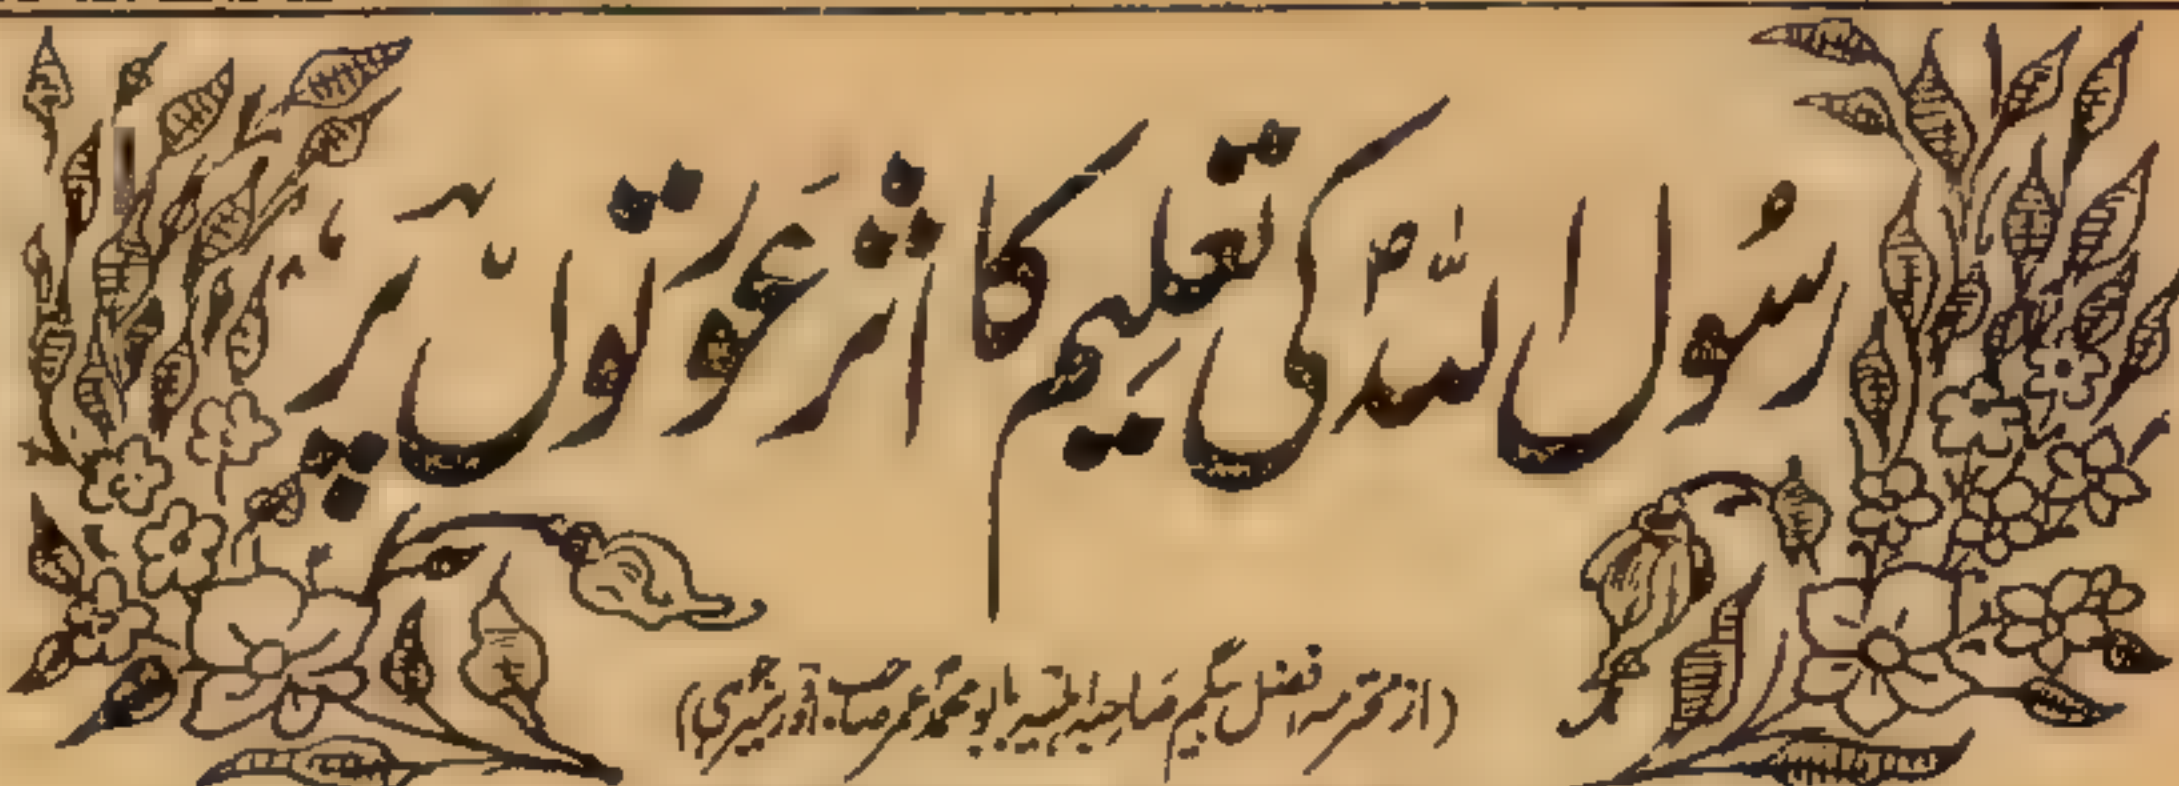 رسُول اللہؐ کی تعلیم کا اثر عَورتوں پر
(از محترمہ افضل بیگم صَاحبہ اہلیہ بابو محمد عمر صاحب)